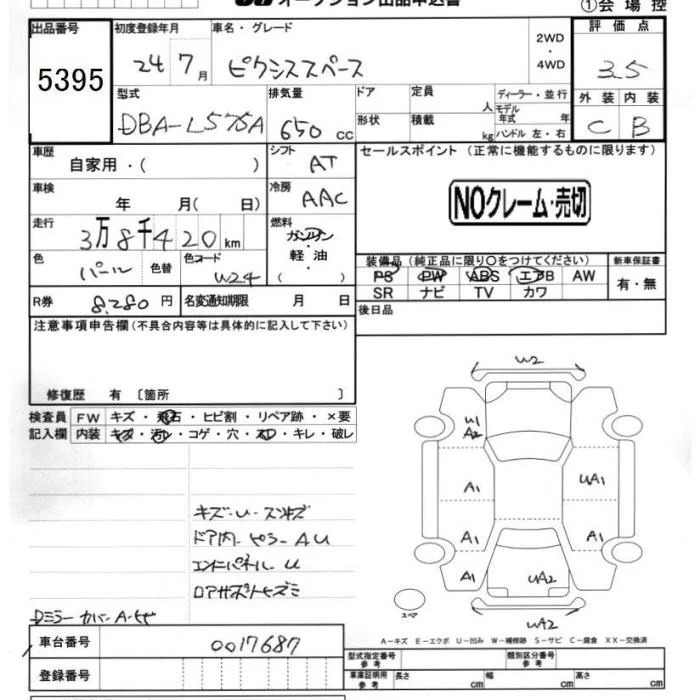 オークション出品申込書 ①会場控
出品番号 初度登録年月 車名・グレード 評価点
5395 24 7月 ピクシススペース 2WD・4WD 3.5
型式 排気量 ドア 定員 人 ディーラー・並行 外装 内装
DBA-L575A 650 CC 形状 積載 kg モデル年式 年 ハンドル 左・右 C B
車歴 自家用・( ) シフト AT セールスポイント (正常に機能するものに限ります)
車検 年 月( 日) 冷房 AAC
NOクレーム・売切
走行 3万8千420km 燃料 ガソリン・軽油・( )
色 パール 色替 色コード W24
装備品 (純正品に限り○をつけてください) 新車保証書
PS PW ABS エアB AW 有・無
SR ナビ TV カワ
R券 8,280円 名変通知期限 月 日 後日品
注意事項申告欄(不具合内容等は具体的に記入して下さい)
修復歴 有 〔箇所 〕
検査員 FW キズ・飛石・ヒビ割・リペア跡・×要
記入欄 内装 キズ・汚レ・コゲ・穴・スレ・キレ・破レ
W2
U1
A2
A1 UA1
A1 A1
A1 UA2
UA2
キズ・U・スリキズ
ドア内・ピラーAU
エンドパネルU
ロアサポートヒズミ
Dミラーカバー A・ヒビ
スペア
車台番号 0017687
A-キズ E-エクボ U-凹み W-補修跡 S-サビ C-腐食 XX-交換済
登録番号
型式指定番号 参考 類別区分番号 参考
車庫証明用 参考 長さ cm 幅 cm 高さ cm